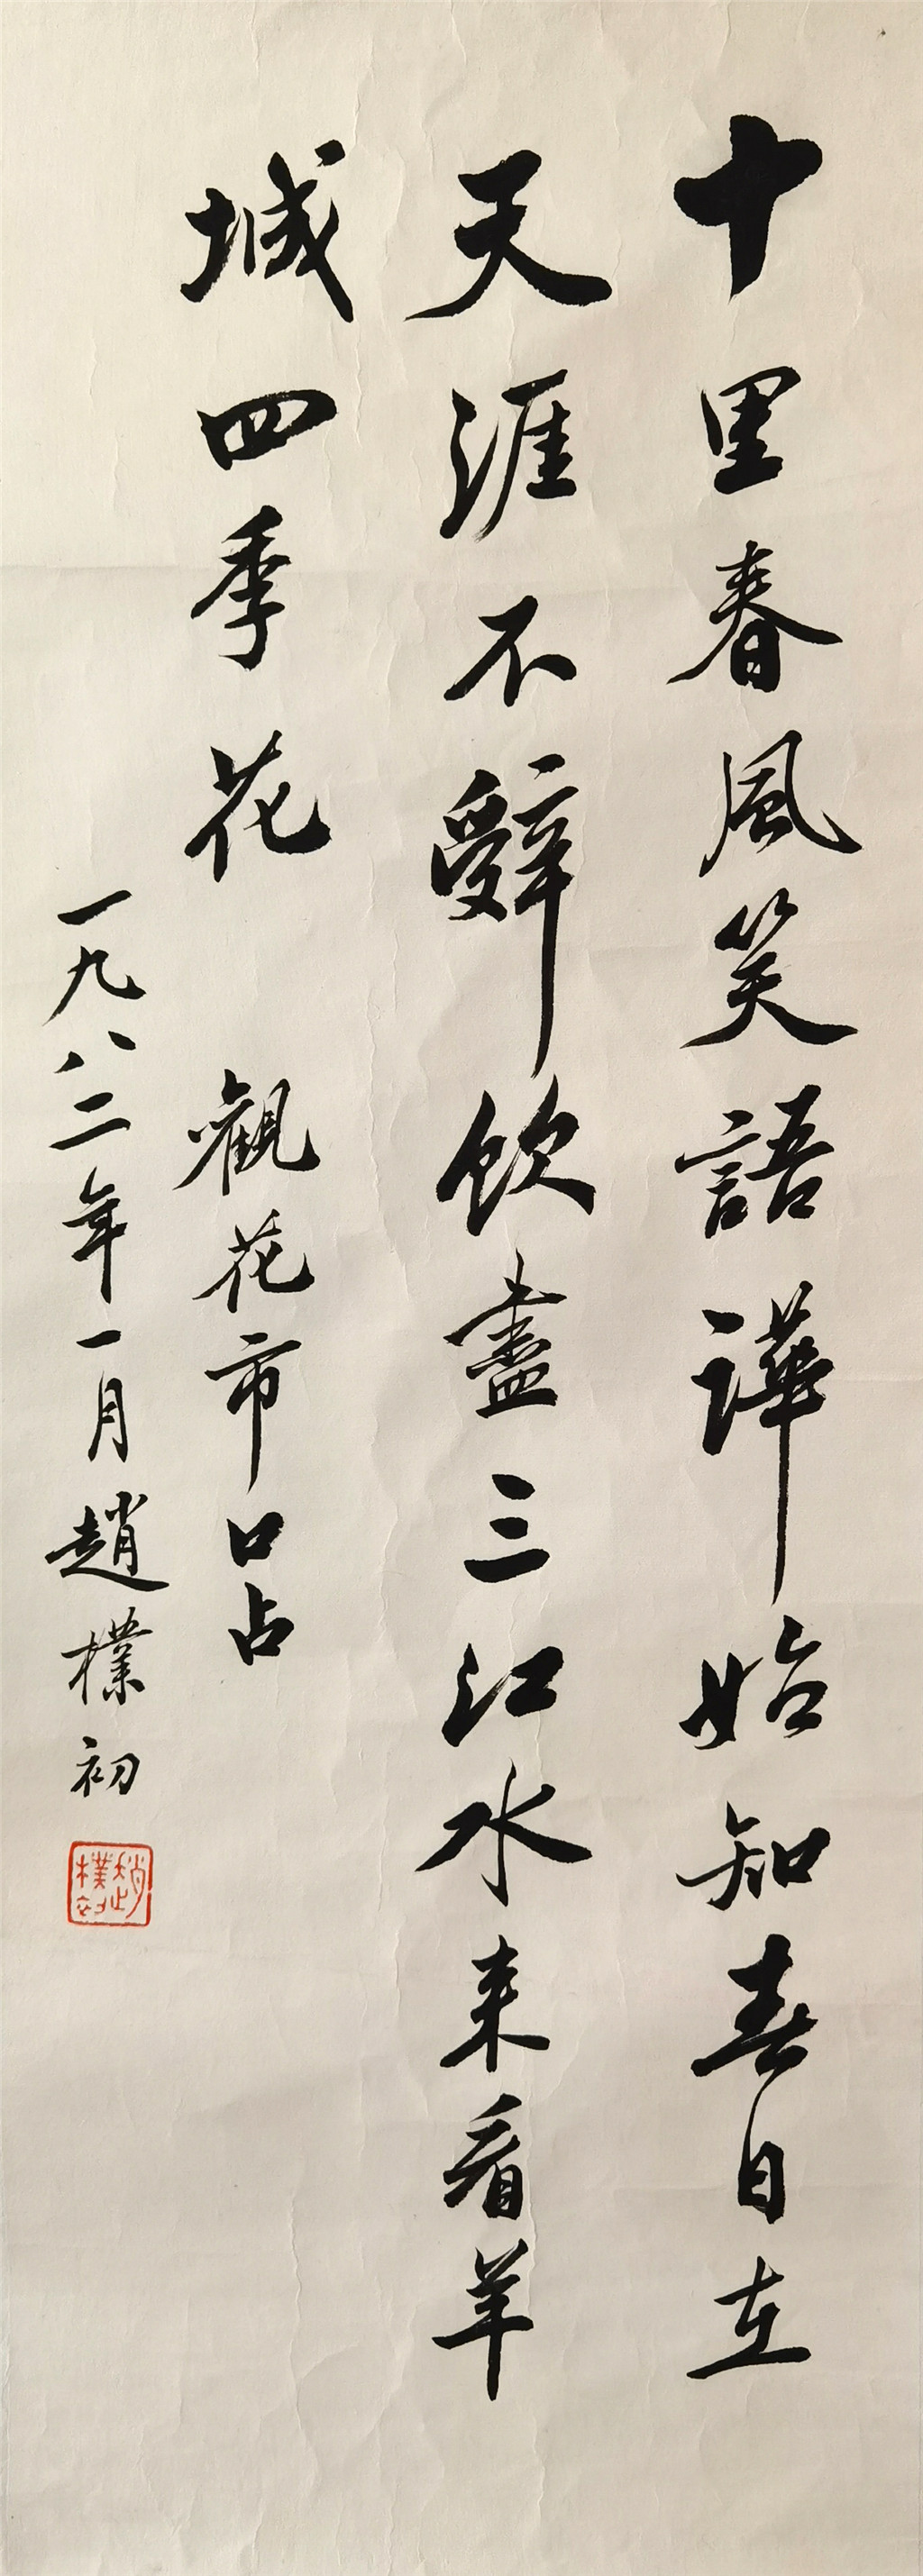 十里春風笑語譁始知春日在
天涯不辭飲盡三江水来看羊
城四季花 觀花市口占
一九八二年一月趙樸初
趙樸初